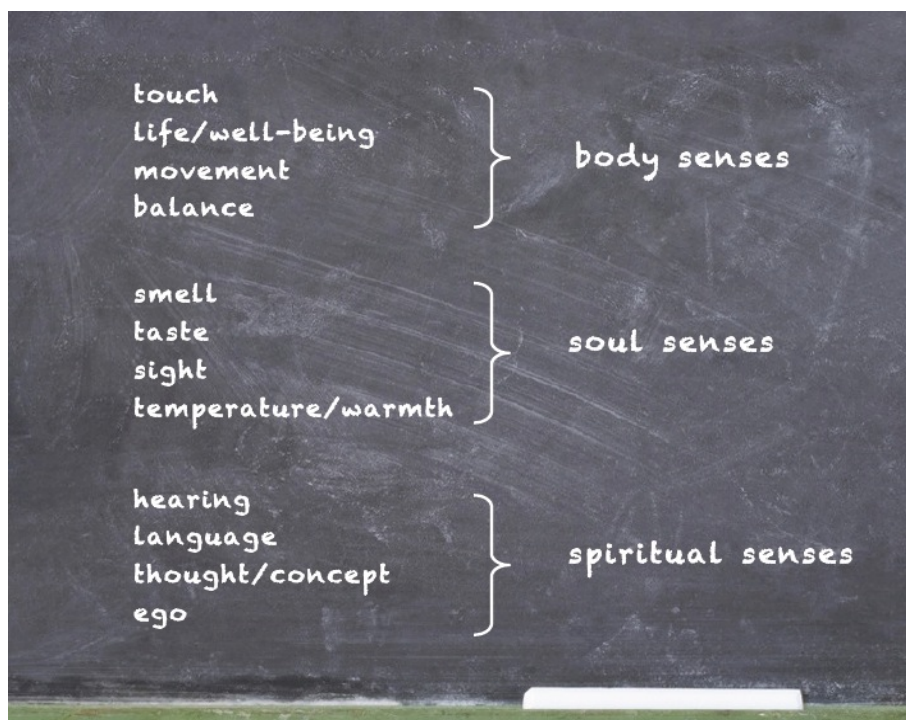 touch
life/well-being
movement
balance
body senses
smell
taste
sight
temperature/warmth
soul senses
hearing
language
thought/concept
ego
spiritual senses